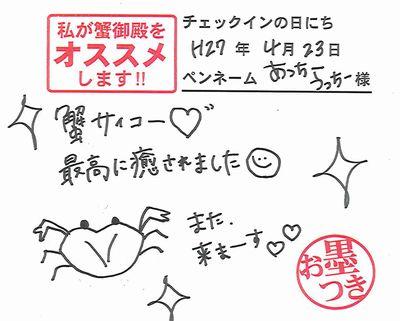 私が蟹御殿を
オススメ
します!!
チェックインの日にち
H27 年 4月 23日
ペンネーム あっちー うっちー 様
蟹サイコー♡
最高に癒されました☺
また、
来まーす♡♡
お墨つき